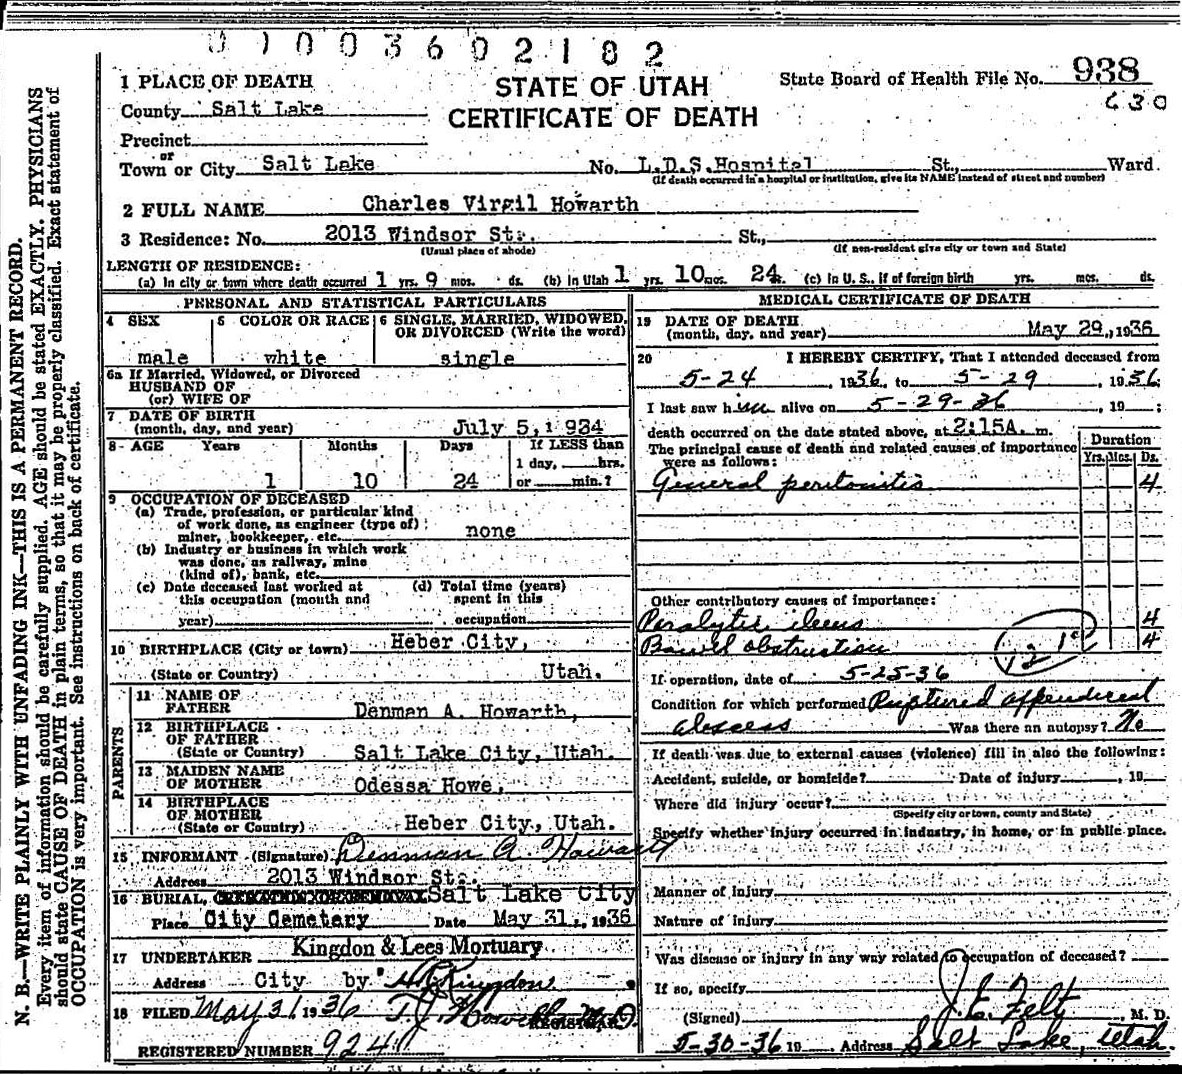 0 1 0 0 3 6 0 2 1 8 2
STATE OF UTAH
CERTIFICATE OF DEATH
State Board of Health File No. 938
630
1 PLACE OF DEATH
County Salt Lake
Precinct
or
Town or City Salt Lake No. L.D.S. Hospital St., Ward
(If death occurred in a hospital or institution, give its NAME instead of street and number)
2 FULL NAME Charles Virgil Howarth
3 Residence: No. 2013 Windsor St. St.,
(Usual place of abode) (If non-resident give city or town and State)
LENGTH OF RESIDENCE:
(a) In city or town where death occurred 1 yrs. 9 mos. ds. (b) In Utah 1 yrs. 10 mos. 24 (c) In U. S., if of foreign birth yrs. mos. ds.
PERSONAL AND STATISTICAL PARTICULARS
4 SEX
male
5 COLOR OR RACE
white
6 SINGLE, MARRIED, WIDOWED, OR DIVORCED (Write the word)
single
6a If Married, Widowed, or Divorced
HUSBAND OF
(or) WIFE OF
7 DATE OF BIRTH
(month, day, and year) July 5, 1934
8 AGE Years Months Days If LESS than
1 day, hrs.
1 10 24 or min.?
9 OCCUPATION OF DECEASED
(a) Trade, profession, or particular kind
of work done, as engineer (type of)
miner, bookkeeper, etc. none
(b) Industry or business in which work
was done, as railway, mine
(kind of), bank, etc.
(c) Date deceased last worked at
this occupation (month and
year)
(d) Total time (years)
spent in this
occupation
10 BIRTHPLACE (City or town) Heber City,
(State or Country) Utah.
PARENTS
11 NAME OF
FATHER Denman A. Howarth,
12 BIRTHPLACE
OF FATHER
(State or Country) Salt Lake City, Utah.
13 MAIDEN NAME
OF MOTHER Odessa Howe,
14 BIRTHPLACE
OF MOTHER
(State or Country) Heber City, Utah.
15 INFORMANT (Signature) Denman A. Howarth
Address 2013 Windsor St.
16 BURIAL, CREMATION OR REMOVAL Salt Lake City
Place City Cemetery Date May 31, 1936
17 UNDERTAKER Kingdon & Lees Mortuary
Address City by Kingdon
18 FILED May 31 1936 T. J. Howells M.D.
REGISTRAR
REGISTERED NUMBER 924
MEDICAL CERTIFICATE OF DEATH
19 DATE OF DEATH
(month, day, and year) May 29, 1936
20 I HEREBY CERTIFY, That I attended deceased from
5-24, 1936, to 5-29, 1936
I last saw him alive on 5-29-36, 19 ;
death occurred on the date stated above, at 2:15A. m.
The principal cause of death and related causes of importance
were as follows:
Duration
Yrs. Mos. Ds.
General peritonitis 4
Other contributory causes of importance:
Paralytic ileus 4
Bowel obstruction 4
121c
If operation, date of 5-25-36
Condition for which performed Ruptured appendiceal
abscess Was there an autopsy? No
If death was due to external causes (violence) fill in also the following:
Accident, suicide, or homicide? Date of injury, 19
Where did injury occur?
(Specify city or town, county and State)
Specify whether injury occurred in industry, in home, or in public place.
Manner of injury
Nature of injury
Was disease or injury in any way related to occupation of deceased?
If so, specify
(Signed) J. E. Felt, M. D.
5-30-36 19 Address Salt Lake, Utah.
N. B.—WRITE PLAINLY WITH UNFADING INK—THIS IS A PERMANENT RECORD.
Every item of information should be carefully supplied. AGE should be stated EXACTLY. PHYSICIANS
should state CAUSE OF DEATH in plain terms, so that it may be properly classified. Exact statement of
OCCUPATION is very important. See instructions on back of certificate.